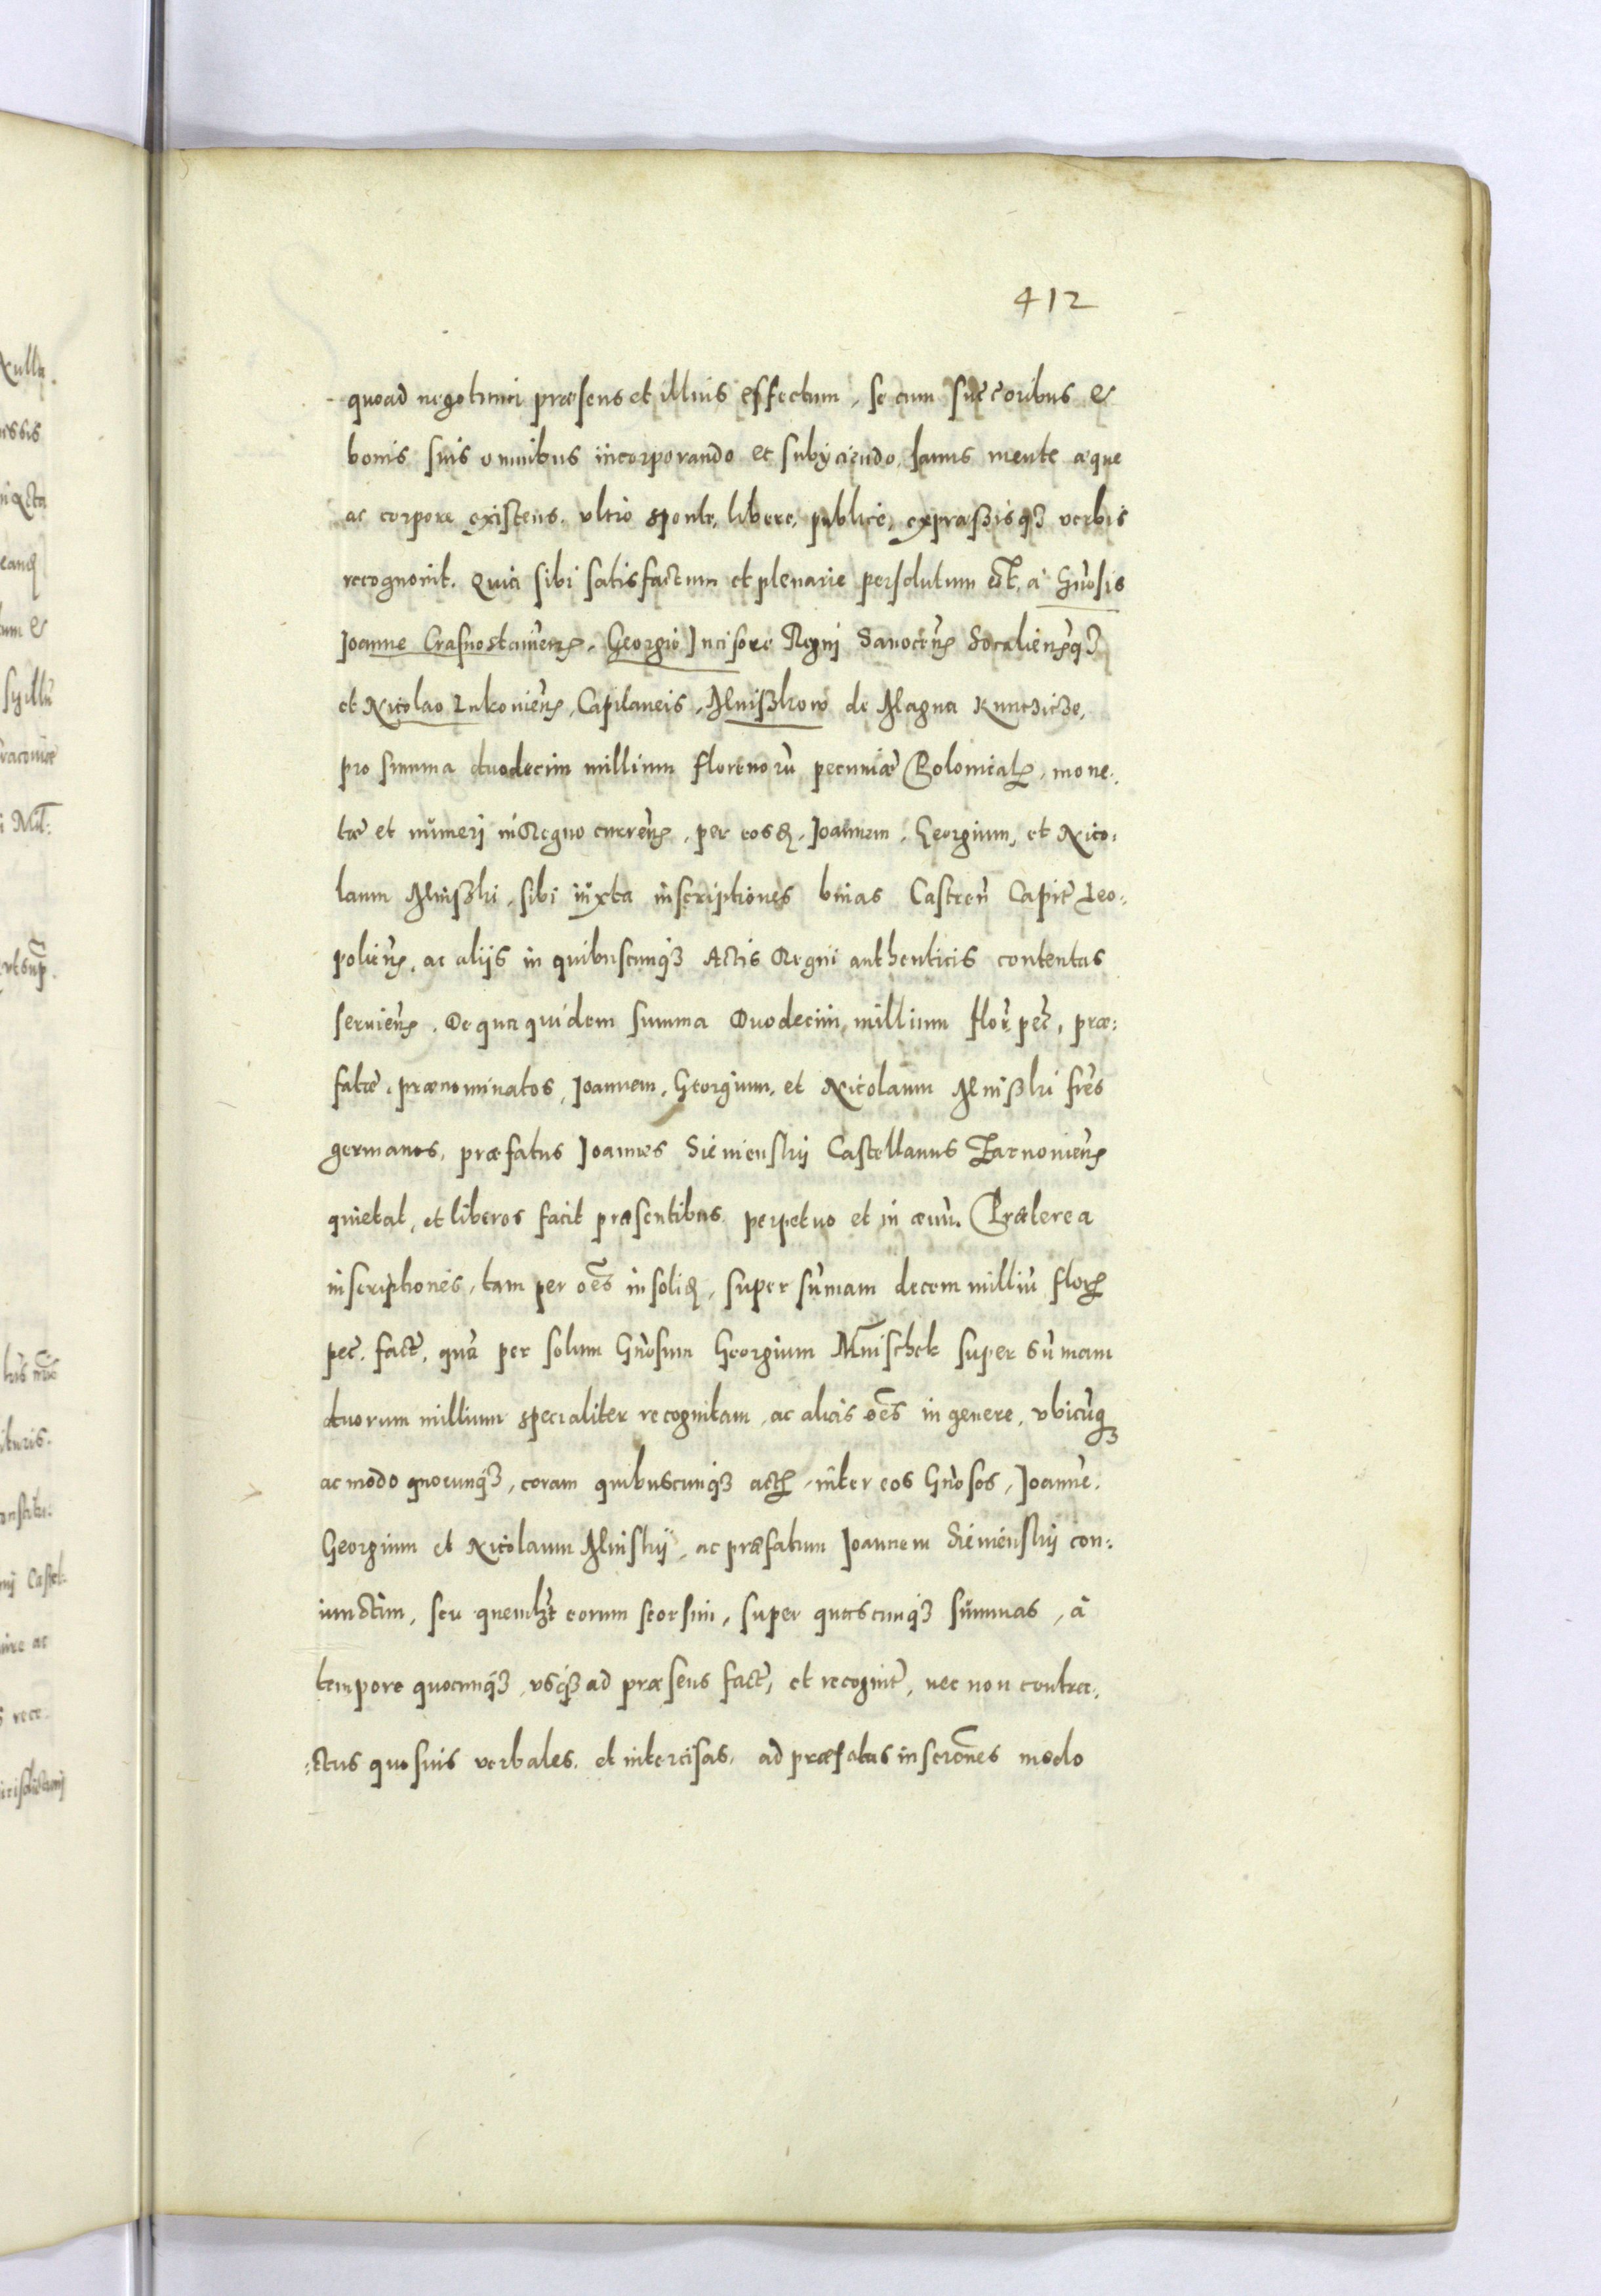 412
quoad negotium præsens et illius effectum, se cum succoribus &
bonis suis omnibus incorporando et subÿciendo, sanus mente æque
ac corpore existens, vltro sponte, libere, publice, expræssisqꝫ verbis
recognouit. Quia sibi satisfactum et plenarie persolutum est, à Gnosis
Joanne Crasnostauien̄, Georgio Incisore Regni Sanocen̄ Socalien̄qꝫ
et Nicolao Lukouien̄, Capitaneis, Mniszkow de Magna Kunczicze,
pro summa duodecim millium florenorū pecuniæ Polonical, mone-
tæ et numeri in Regno curren̄, per eosd, Joannem, Georgium, et Nico-
laum Mniszki, sibi iuxta inscriptiones binas Castren̄ Capit Leo-
polien̄, ac aliis in quibuscunqꝫ Actis Regni authenticis contentas
seruien̄. De qua quidem summa Duodecim millium flor pec, præ-
fatæ, prænominatos, Joannem, Georgium, et Nicolaum Mniszki frēs
germanos, præfatus Joannes Sienienskij Castellanus Zarnouien̄
quietat, et liberos facit præsentibus perpetuo et in æuū. Præterea
inscriptiones, tam per oēs in solid, super sūmam decem milliū flor
pec. fact, quā per solum Gnosum Georgium Mnischek super sūmam
duorum millium specialiter recognitam, ac alias oēs in genere, vbicūqꝫ
ac modo quocunqꝫ, coram quibuscunqꝫ act, inter eos Gnosos, Joannē,
Georgium et Nicolaum Mniskij, ac præfatum Joannem Sienienskij con-
iunctim, seu quemlꝫt eorum seorsim, super quascunqꝫ summas, à
tempore quocunqꝫ, vsqꝫ ad præsens fact, et recognit, nec non contra-
ctus quosuis verbales, et intercisas, ad præfatas inscrōnes modo